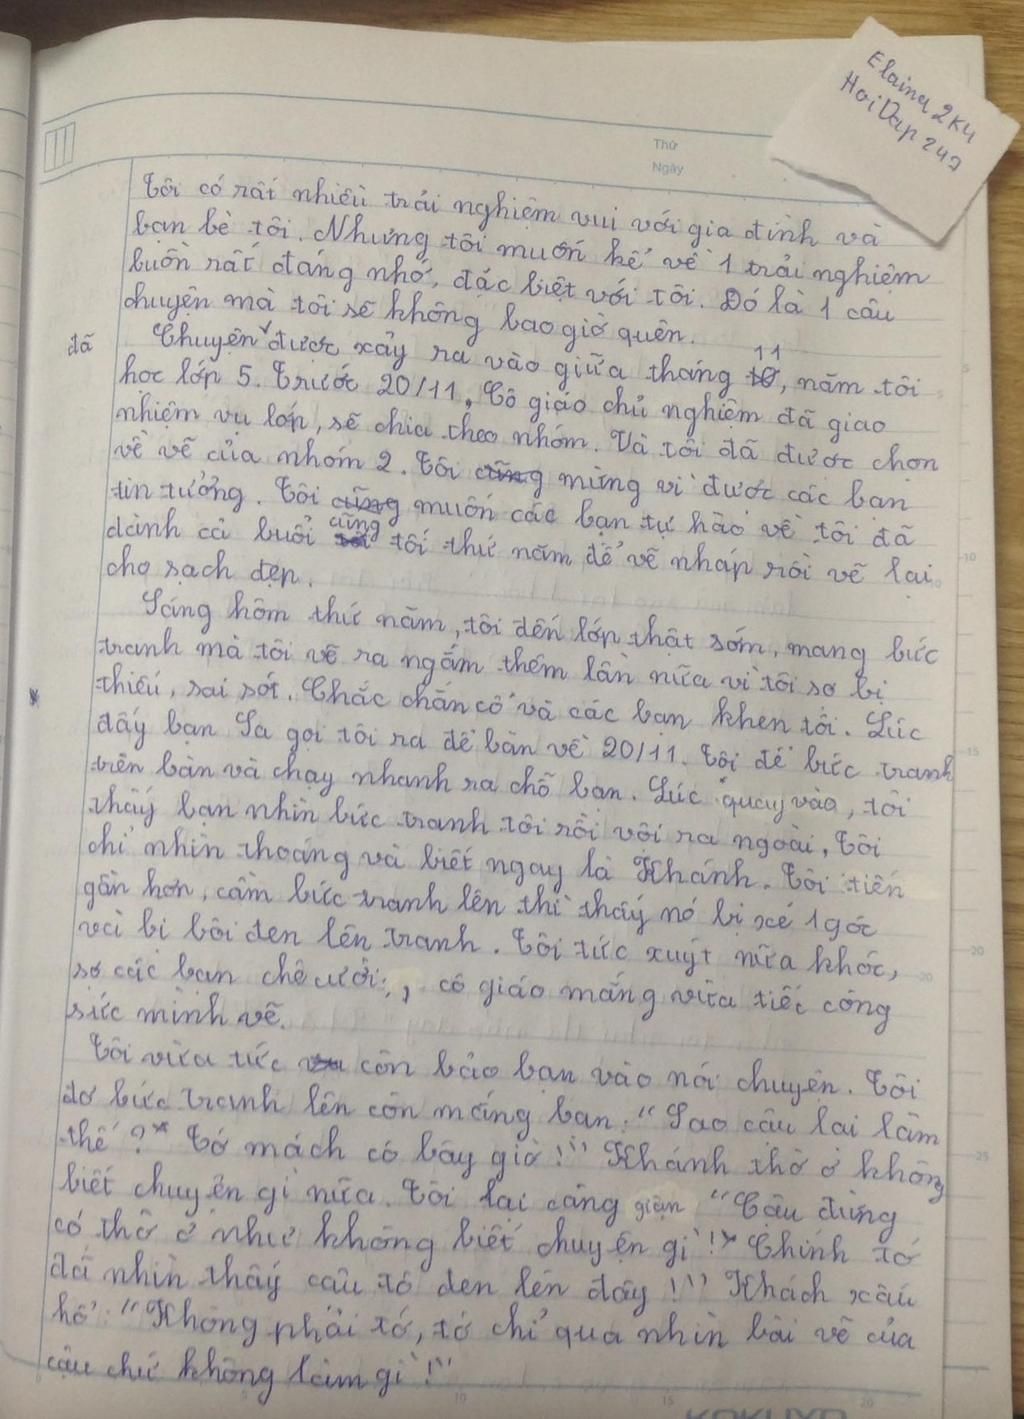 Elaina 2k4
HoiDap 247
Thứ
Ngày
Tôi có rất nhiều trải nghiệm vui với gia đình và
bạn bè tôi. Nhưng tôi muốn kể về 1 trải nghiệm
buồn rất đáng nhớ, đặc biệt với tôi. Đó là 1 câu
chuyện mà tôi sẽ không bao giờ quên.
Chuyện đã được xảy ra vào giữa tháng 11, năm tôi
học lớp 5. Trước 20/11, Cô giáo chủ nghiệm đã giao
nhiệm vụ lớp, sẽ chia theo nhóm. Và tôi đã được chọn
về vẽ của nhóm 2. Tôi mừng vì được các bạn
tin tưởng. Tôi muốn các bạn tự hào về tôi đã
dành cả buổi cũng tối thứ năm để vẽ nháp rồi vẽ lại
cho sạch đẹp.
Sáng hôm thứ năm, tôi đến lớp thật sớm, mang bức
tranh mà tôi vẽ ra ngắm thêm lần nữa vì tôi sợ bị
thiếu, sai sót. Chắc chắn cô và các bạn khen tôi. Lúc
đấy bạn Sa gọi tôi ra để bàn về 20/11. Tôi để bức tranh
trên bàn và chạy nhanh ra chỗ bạn. Lúc quay vào, tôi
thấy bạn nhìn bức tranh tôi rồi vội ra ngoài, Tôi
chỉ nhìn thoáng và biết ngay là Khánh. Tôi tiến
gần hơn, cầm bức tranh lên thì thấy nó bị xé 1 góc
và bị bôi đen lên tranh. Tôi tức xuýt nữa khóc,
sợ các bạn chê cười, cô giáo mắng vừa tiếc công
sức mình vẽ.
Tôi vừa tức còn bảo bạn vào nói chuyện. Tôi
đơ bức tranh lên còn mắng bạn: "Sao cậu lại làm
thế? Tớ mách cô bây giờ!" Khánh thờ ơ không
biết chuyện gì nữa. Tôi lại càng giận "Cậu đừng
có thờ ơ như không biết chuyện gì! Chính tớ
đã nhìn thấy cậu tô đen lên đấy!" Khách xấu
hổ: "Không phải tớ, tớ chỉ qua nhìn bài vẽ của
cậu chứ không làm gì!"
KOKUYO